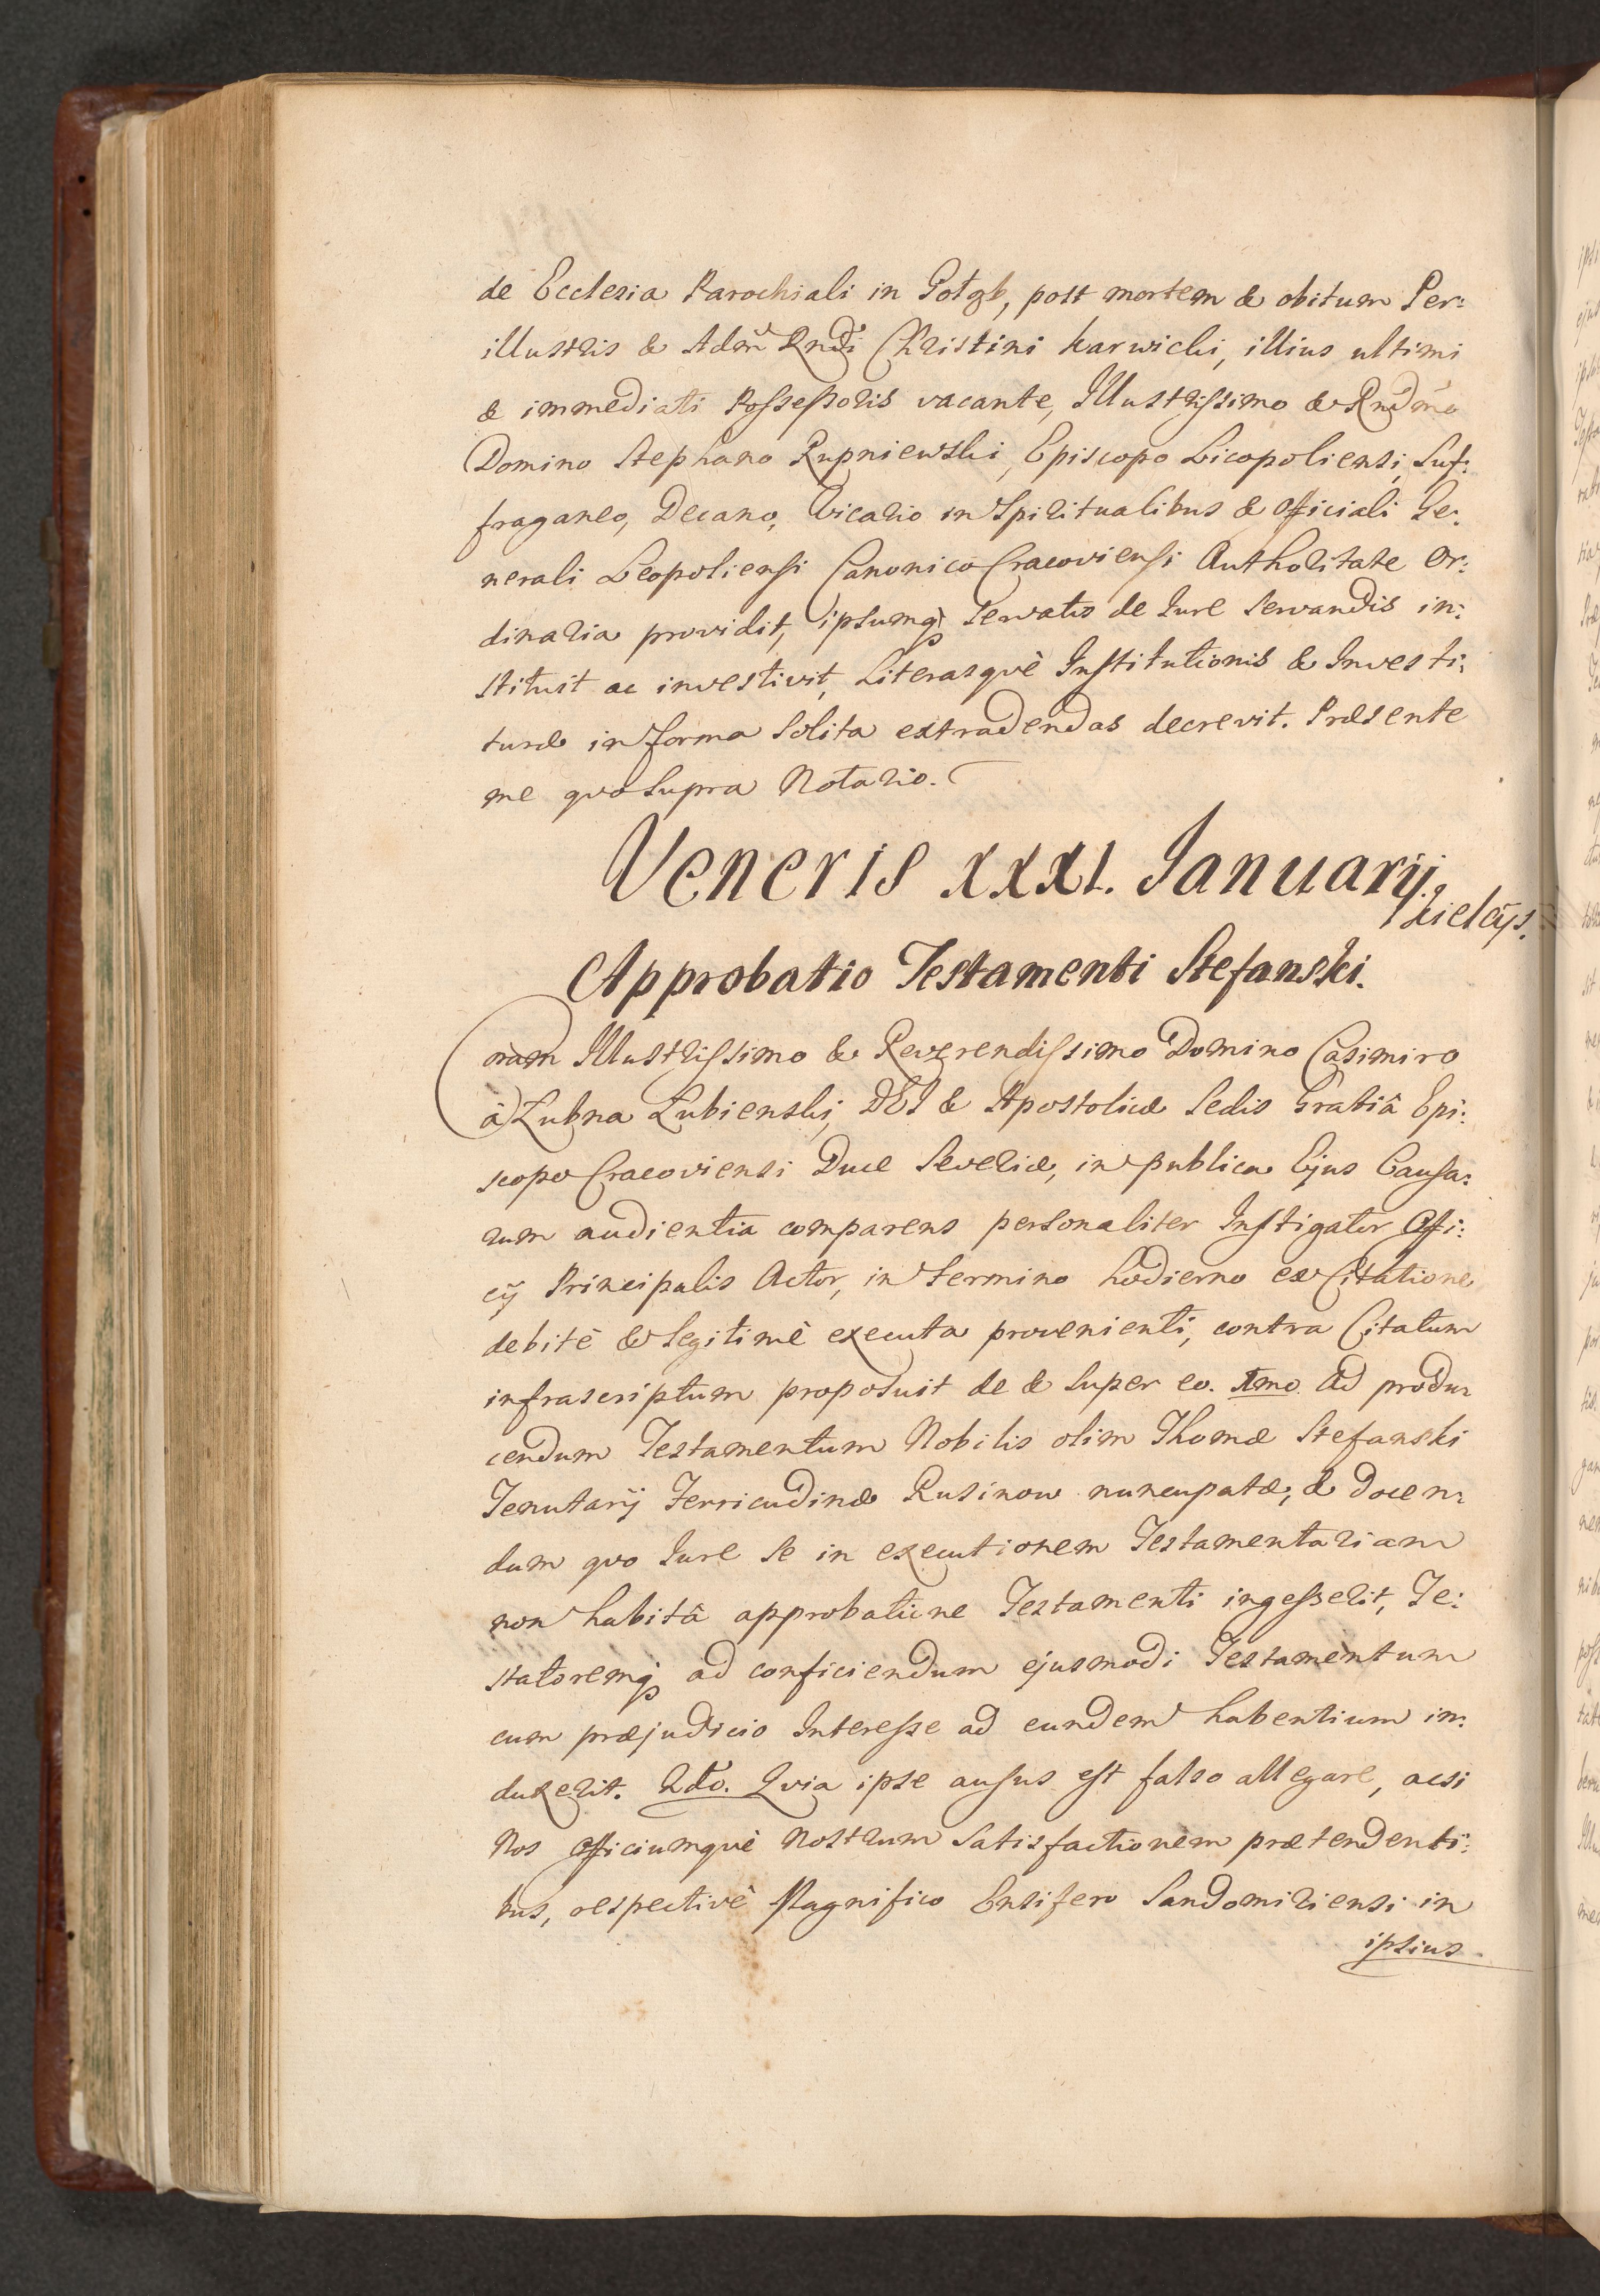 de Ecclesia Parochiali in Gołąb, post mortem & obitum Per:
illustris & Adm̃ Rnd̃i Christini Karwicki, illius ultimi
& immediati Possessoris vacante, Illustrissimo & Rnd̃mo
Domino Stephano Rupniewski, Episcopo Licopoliensi, Suf:
fraganeo, Decano, Vicario in Spiritualibus & Officiali Ge:
nerali Leopoliensi Canonico Cracoviensi Authoritate Or:
dinaria providit, ipsumq; servatis de Jure servandis in:
stituit ac investivit, Literasquè Institutionis & Investi:
turæ in forma solita extradendas decrevit. Præsente
me quo supra Notario.
Veneris XXXI. Januarij.
Kielcijs.
Approbatio Testamenti Stefanski.
Coram Illustrissimo & Reverendissimo Domino Casimiro
à Łubna Łubienski, DEI & Apostolicæ Sedis Gratiâ Epi:
scopo Cracoviensi Duce Severiæ, in publica Ejus Causa:
rum audientia comparens personaliter Instigator Offi:
cij Principalis Actor, in termino hodierno ex Citatione
debitè & legitimè executa provenienti, contra Citatum
infrascriptum proposuit de & super eo. 1mo. Ad produ:
cendum Testamentum Nobilis olim Thomæ Stefanski
Tenutarij Ferricudinæ Rusinow nuncupatæ, & docen:
dum quo Jure se in executionem Testamentariam
non habitâ approbatione Testamenti ingesserit, Te:
statoremq; ad conficiendum ejusmodi Testamentum
cum præjudicio Interesse ad eundem habentium in:
duxerit. 2do. Quia ipse ausus est falso allegare, acsi
Nos Officiumquè Nostrum satisfactionem prætendenti:
bus, respectivè Magnifico Ensifero Sandomiriensi in
ipsius